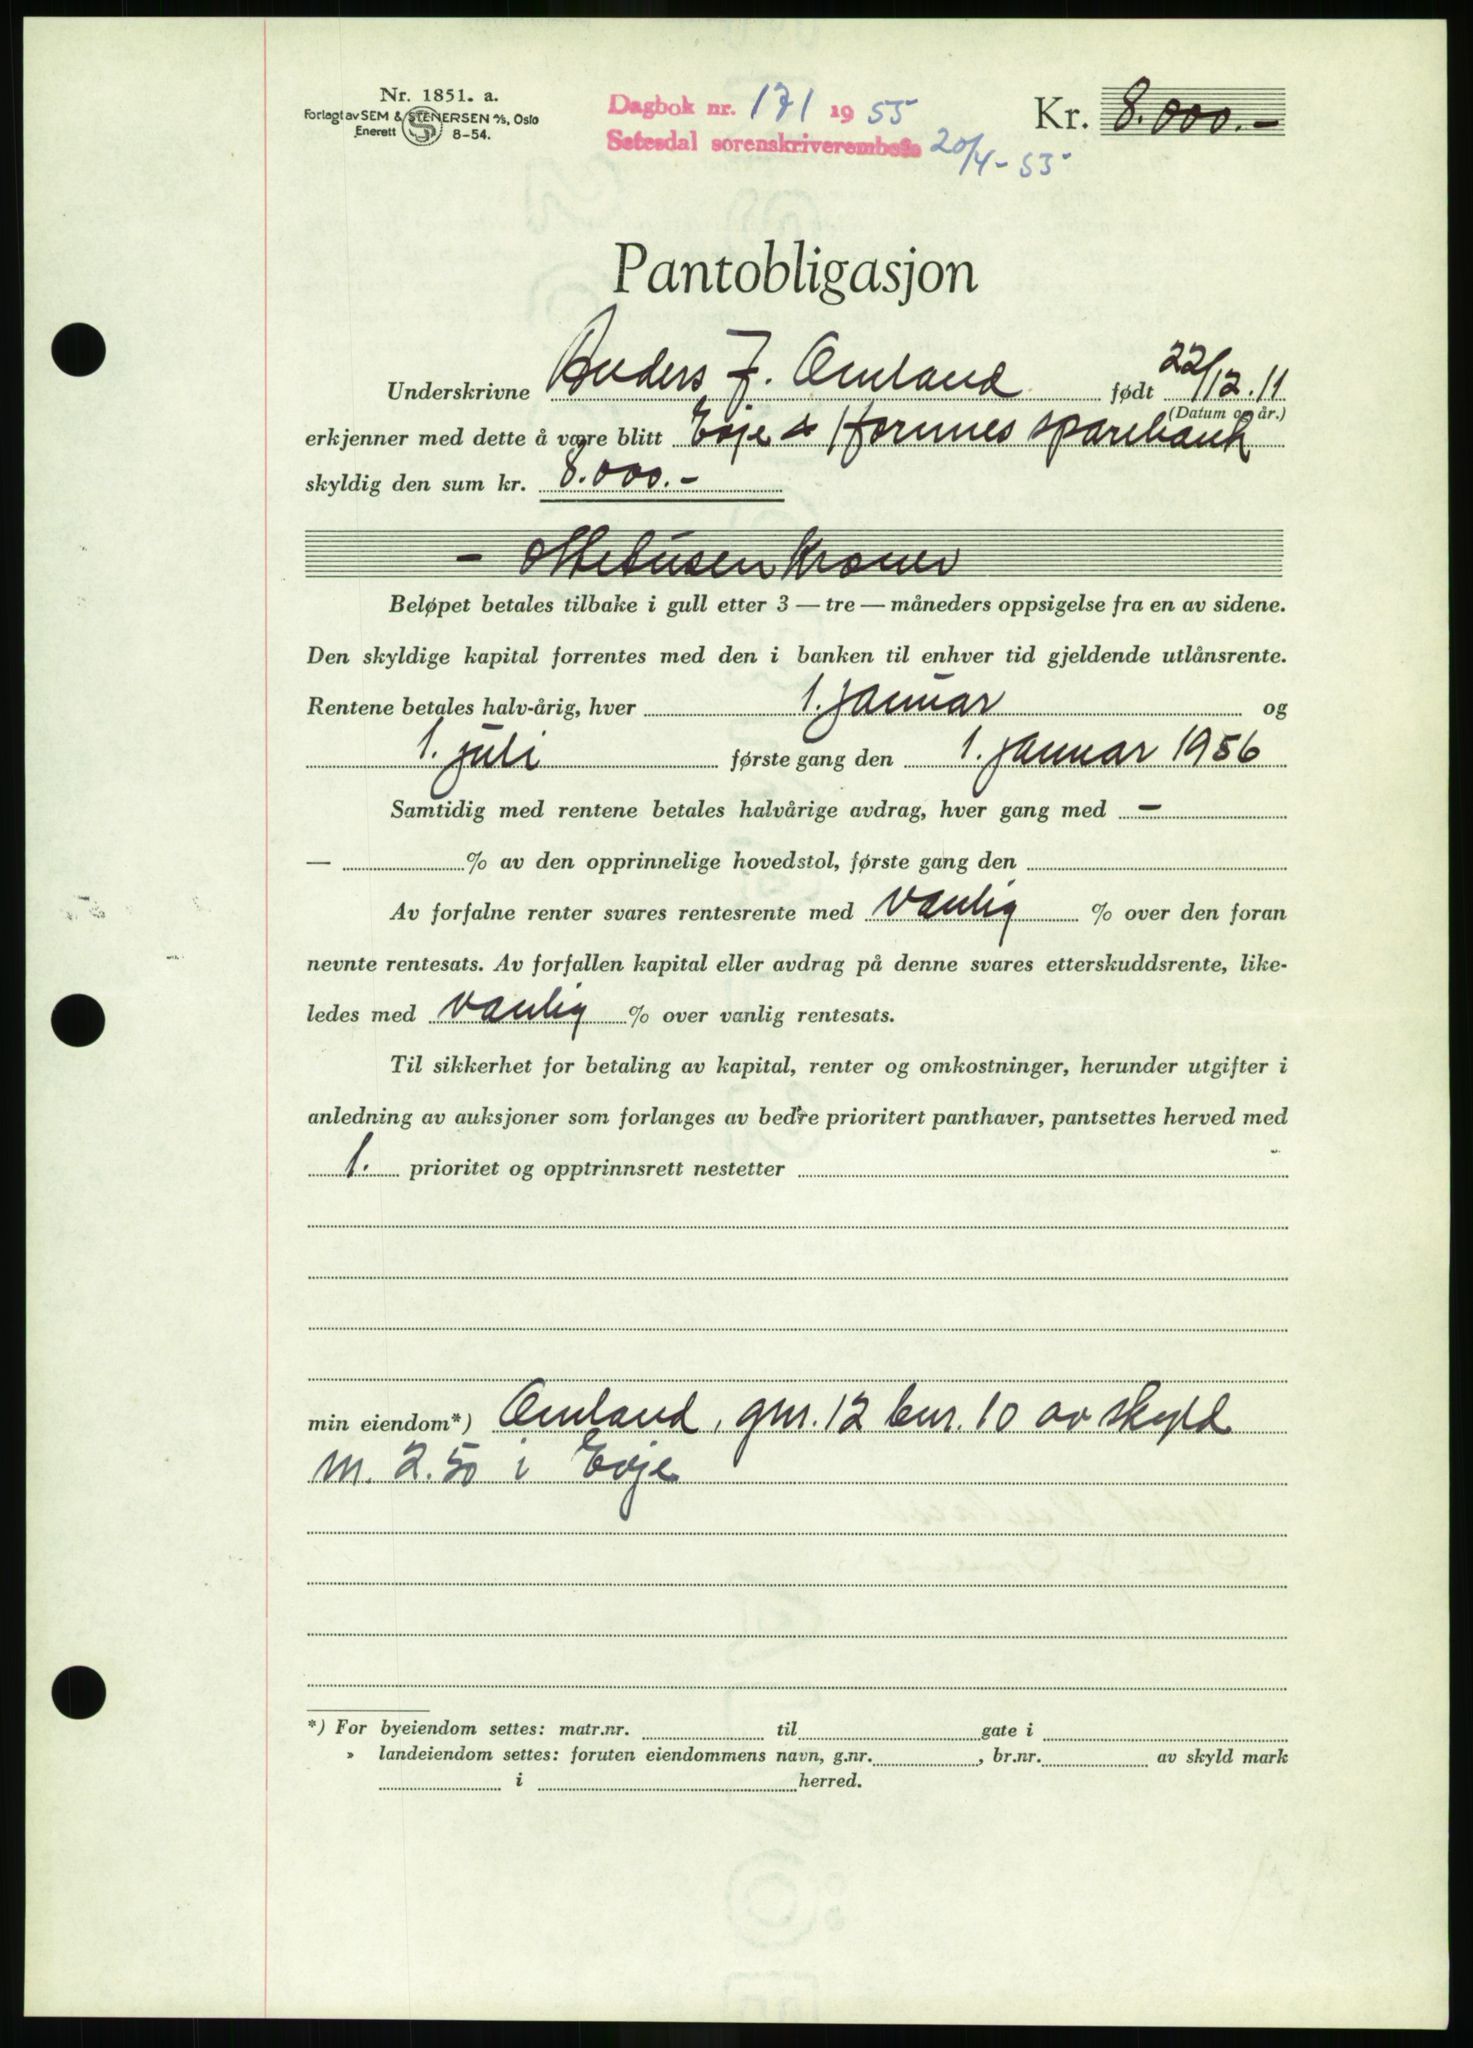 Nr. 1851. a.
Forlagt av SEM & STENERSEN A/S, Oslo
Enerett 8-54.
Dagbok nr. 171 1955
Setesdal sorenskriverembete 20/4-55
Kr. 8.000.-
Pantobligasjon
Underskrivne Anders J. Omland født 22/12.11
(Datum og år.)
erkjenner med dette å være blitt Evje & Hornnes sparebank
skyldig den sum kr. 8.000.-
- Ottetusen kroner
Beløpet betales tilbake i gull etter 3 — tre — måneders oppsigelse fra en av sidene.
Den skyldige kapital forrentes med den i banken til enhver tid gjeldende utlånsrente.
Rentene betales halv-årig, hver 1. januar og
1. juli første gang den 1. januar 1956
Samtidig med rentene betales halvårige avdrag, hver gang med —
— % av den opprinnelige hovedstol, første gang den
Av forfalne renter svares rentesrente med vanlig % over den foran
nevnte rentesats. Av forfallen kapital eller avdrag på denne svares etterskuddsrente, like-
ledes med vanlig % over vanlig rentesats.
Til sikkerhet for betaling av kapital, renter og omkostninger, herunder utgifter i
anledning av auksjoner som forlanges av bedre prioritert panthaver, pantsettes herved med
1. prioritet og opptrinnsrett nestetter
min eiendom*) Omland, gnr. 12 bnr. 10 av skyld
m. 2.50 i Evje
*) For byeiendom settes: matr.nr. til gate i
» landeiendom settes: foruten eiendommens navn, g.nr. , br.nr. av skyld mark
i herred.